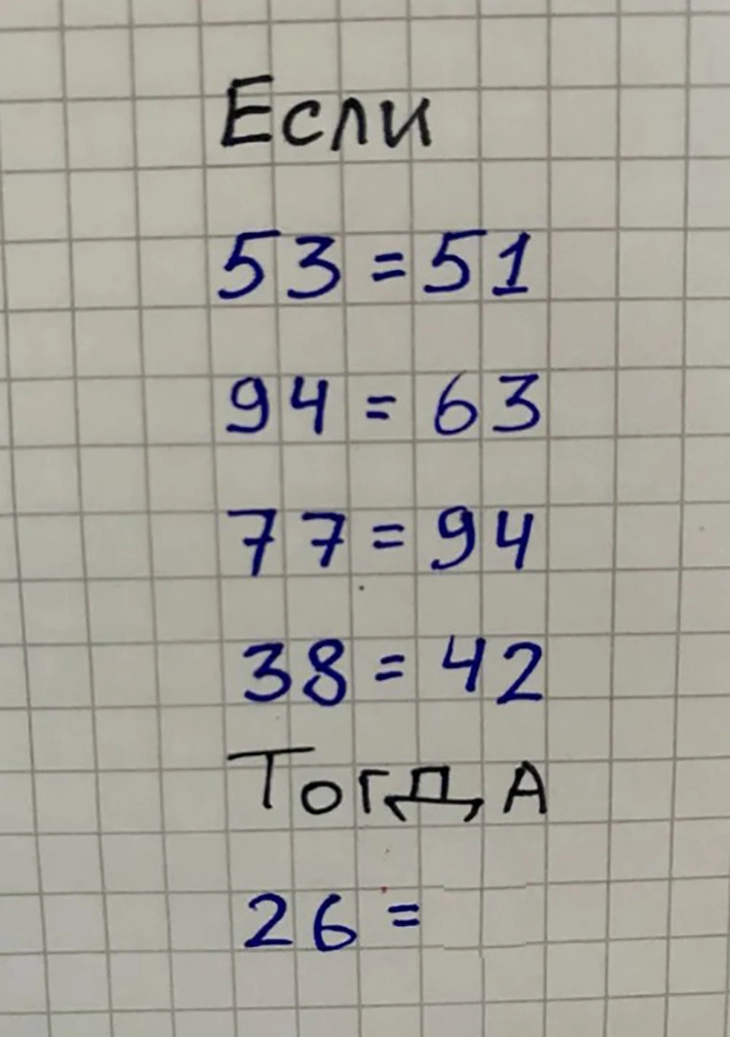 Если
53 = 51
94 = 63
77 = 94
38 = 42
ТогдА
26 =